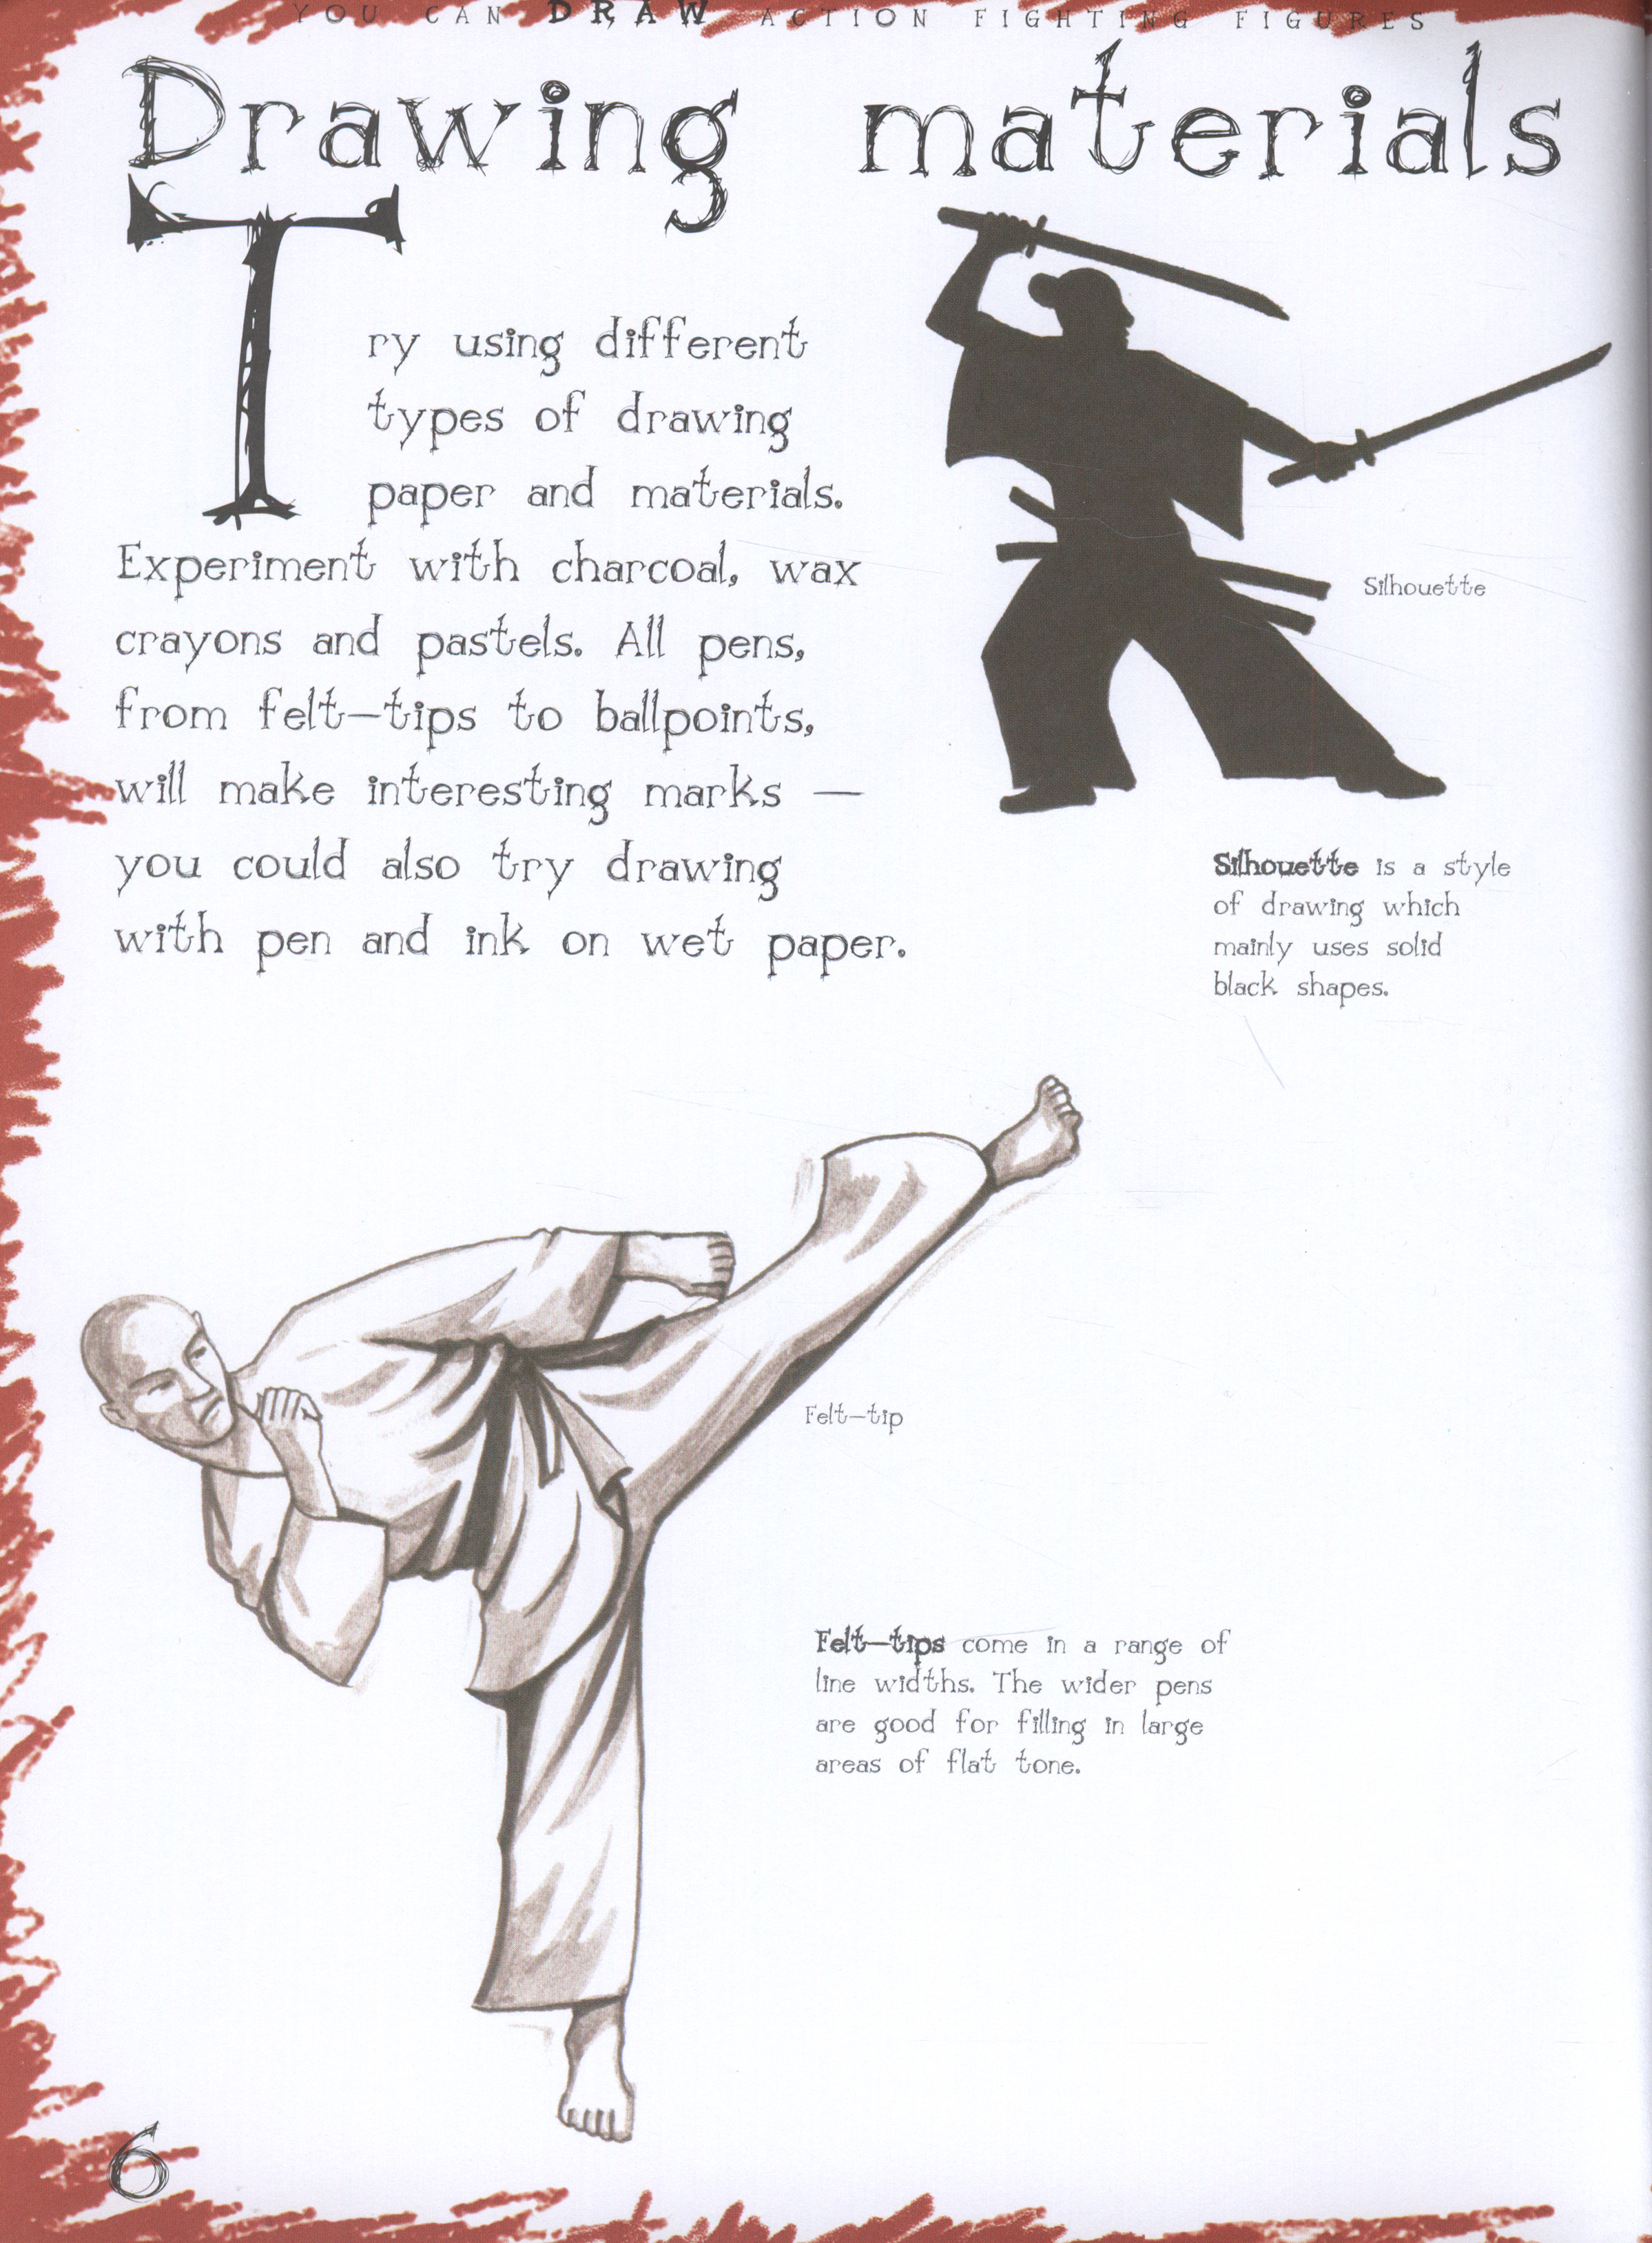 YOU CAN DRAW ACTION FIGHTING FIGURES
Drawing materials
Try using different
types of drawing
paper and materials.
Experiment with charcoal, wax
crayons and pastels. All pens,
from felt-tips to ballpoints,
will make interesting marks —
you could also try drawing
with pen and ink on wet paper.
Silhouette
Silhouette is a style
of drawing which
mainly uses solid
black shapes.
Felt-tip
Felt-tips come in a range of
line widths. The wider pens
are good for filling in large
areas of flat tone.
6